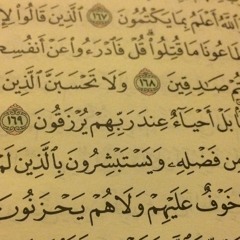 اللَّهُ أَعْلَمُ بِمَا يَكْتُمُونَ ١٦٧ الَّذِينَ قَالُوا لِإِ
طَاعُونَا مَا قُتِلُوا قُلْ فَادْرَءُوا عَنْ أَنفُسِ
صَادِقِينَ ١٦٨ وَلَا تَحْسَبَنَّ الَّذِينَ
بَلْ أَحْيَاءٌ عِندَ رَبِّهِمْ يُرْزَقُونَ ١٦٩
مِن فَضْلِهِ وَيَسْتَبْشِرُونَ بِالَّذِينَ لَمْ
خَوْفٌ عَلَيْهِمْ وَلَا هُمْ يَحْزَنُونَ